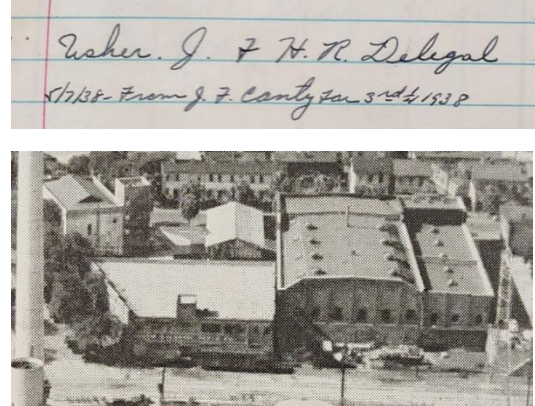 Usher. J. F H. R. Delegal
5/7/38 - From J. F. Canty For 3rd 1/4 1938